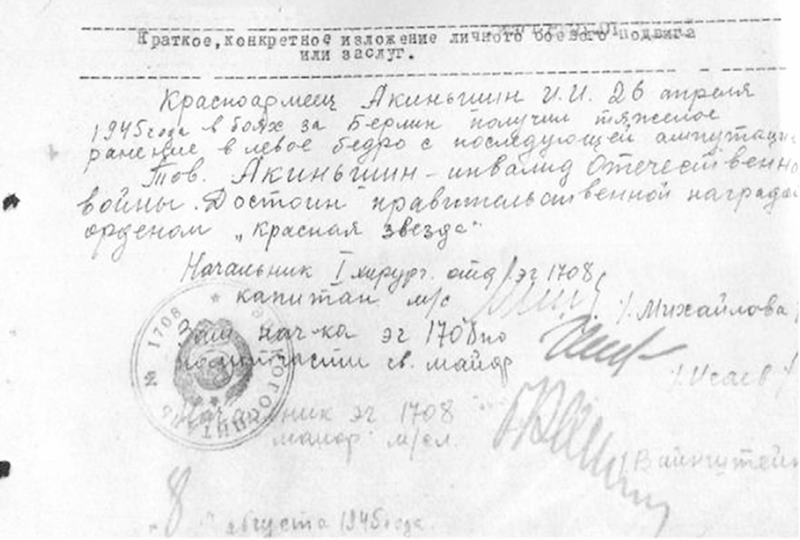 Краткое, конкретное изложение личного боевого подвига
или заслуг.
Красноармеец Акиньшин И.И. 26 апреля
1945 года в боях за Берлин получил тяжелое
ранение в левое бедро с последующей ампутаци
Тов. Акиньшин – инвалид Отечественно
войны. Достоин правительственной награды
орденом „Красная звезда“
Начальник I хирург. отд. эг 1708
капитан м/с /Михайлова/
Зам нач-ка эг 1708 по
политчасти гв. майор /Исаев/
Начальник эг 1708
майор м/сл. /Вайнштейн
№ 1708
ГОСПИТ
„8“ августа 1945 года.